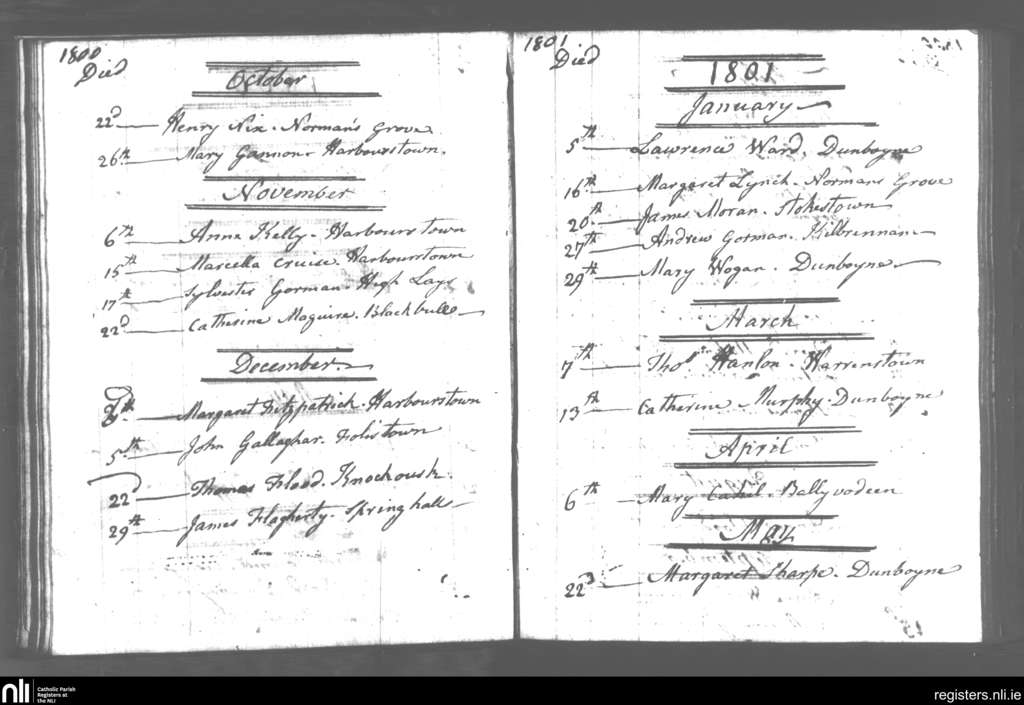 1800
Died
October
22d Henry Nix. Norman's Grove
26th Mary Gannon. Harbourstown.
November
6th Anne Kelly. Harbourstown
15th Marcella Cruise. Harbourstown
17th Sylvester Gorman. High Lays
22d Catherine Maguire. Blackbull
December
th Margaret Fitzpatrick. Harbourstown
5th John Gallaghar.
22 Thomas Flood. Knockousk.
29th James Flagherty. Spring hall
1801
Died
1801
January
5th Lawrence Ward. Dunboyne
16th Margaret Lynch. Normans Grove
20th James Moran. Stokestown
27th Andrew Gorman. Kilbrennan
29th Mary Wogan. Dunboyne
March
7th Thos Hanlon. Warrenstown
13th Catherine Murphy. Dunboyne
April
6th Mary Cahil. Ballyvodeen
May
22d Margaret Sharpe. Dunboyne
nli Catholic Parish
Registers at
the NLI
registers.nli.ie